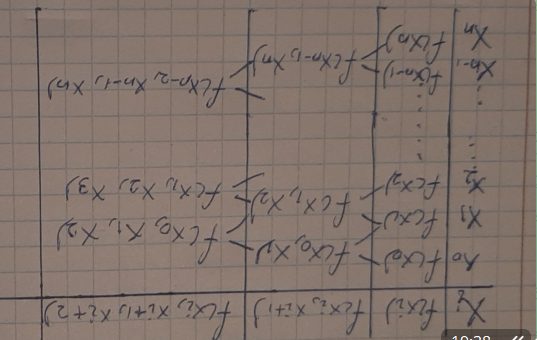 xi f(xi) f(xi, xi+1) f(xi, xi+1, xi+2)
x0 f(x0)
f(x0, x1)
x1 f(x1) f(x0, x1, x2)
f(x1, x2)
x2 f(x2) f(x1, x2, x3)
⋮ ⋮
xn-1 f(xn-1) f(xn-2, xn-1, xn)
f(xn-1, xn)
xn f(xn)
10:28